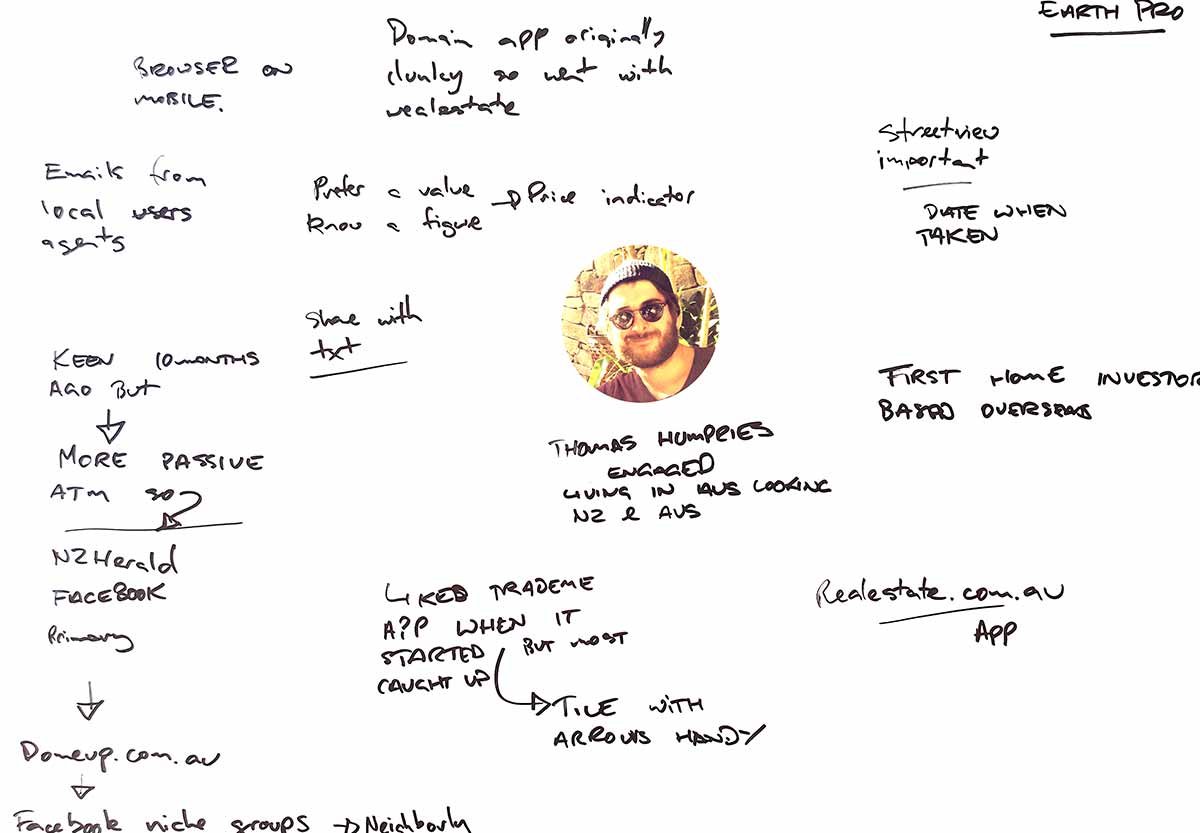 EARTH PRO
BROWSER ON
MOBILE.
Domain app originally
clunky so went with
realestate
Streetview
important
DATE WHEN
TAKEN
Emails from
local users
agents
Prefer a value → Price indicator
Know a figure
Share with
txt
KEEN 10 MONTHS
AGO BUT
MORE PASSIVE
ATM SO
NZHerald
FACEBOOK
Primary
Domeup.com.au
Facebook niche groups → Neighborly
THOMAS HUMPRIES
ENGAGED
LIVING IN AUS LOOKING
NZ & AUS
FIRST HOME INVESTOR
BASED OVERSEAS
LIKED TRADEME
APP WHEN IT
STARTED BUT MOST
CAUGHT UP
TILE WITH
ARROWS HANDY
Realestate.com.au
APP